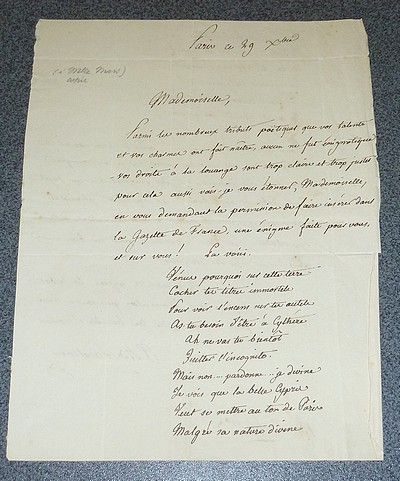 Paris ce 29 Xbre
(à Mlle Mars)
actrice
Mademoiselle,
Parmi les nombreux tributs poëtiques que vos talents
et vos charmes ont fait naitre, aucun ne fut énigmatique
vos droits à la louange sont trop clairs et trop justes
pour cela aussi vais-je vous étonner, Mademoiselle,
en vous demandant la permission de faire insérer dans
la Gazette de France, une énigme faite pour vous,
et sur vous! La voici.
Vénus pourquoi sur cette terre
Cacher ton titre immortele
Pour voir l'encens sur ton autele
As tu besoin d'être à Cythère
Ah ne vas tu bientôt
Quitter l'incognito.
Mais non... pardonne... je devine
Je vois que la belle Cypris
Veut se mettre au ton de Paris
Malgré sa nature divine